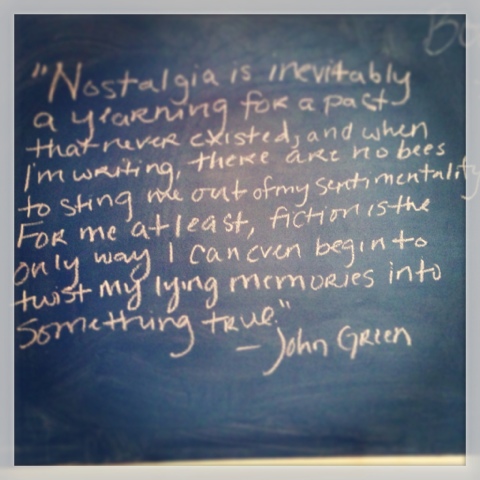 Bo
"Nostalgia is inevitably
a yearning for a past
that never existed, and when
I'm writing, there are no bees
to sting me out of my sentimentality
For me at least, fiction is the
only way I can even begin to
twist my lying memories into
something true."
- John Green